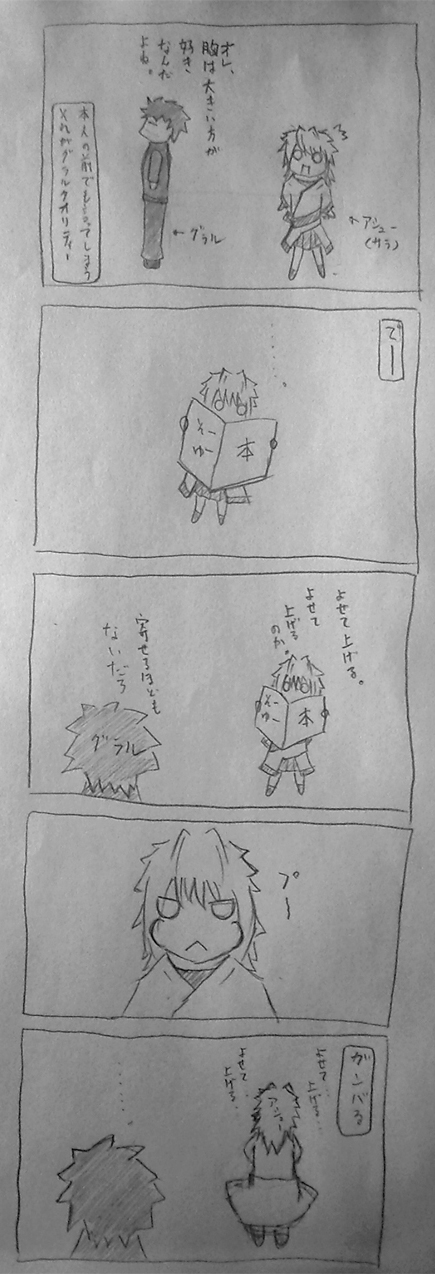 オレ、
胸は大きい方が
好き
なんだ
よね。
アシュー
(サラ)
←グラル
本人の前でも言ってしまう
それがグラルクオリティー
でー
‥‥‥。
そー
ゆー
本
よせて上げる。
よせて
上げる
のか。
そー
ゆー
本
寄せるほども
ないだろ
グラル
プー
ガンバる
よせて‥
上げる‥
よせて‥
上げる‥
アシュー
‥‥‥